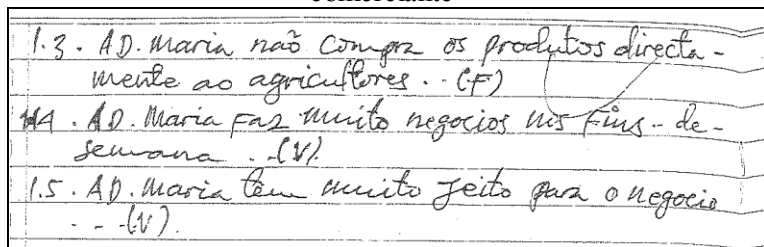 comerciante
1.3. AD. Maria não compra os produtos directa-
mente ao agricultores. . (F)
1.4. AD. Maria faz muito negocios nos fins-de-
semana . . (V).
1.5. AD. Maria tem muito jeito para o negocio
. . . (V).